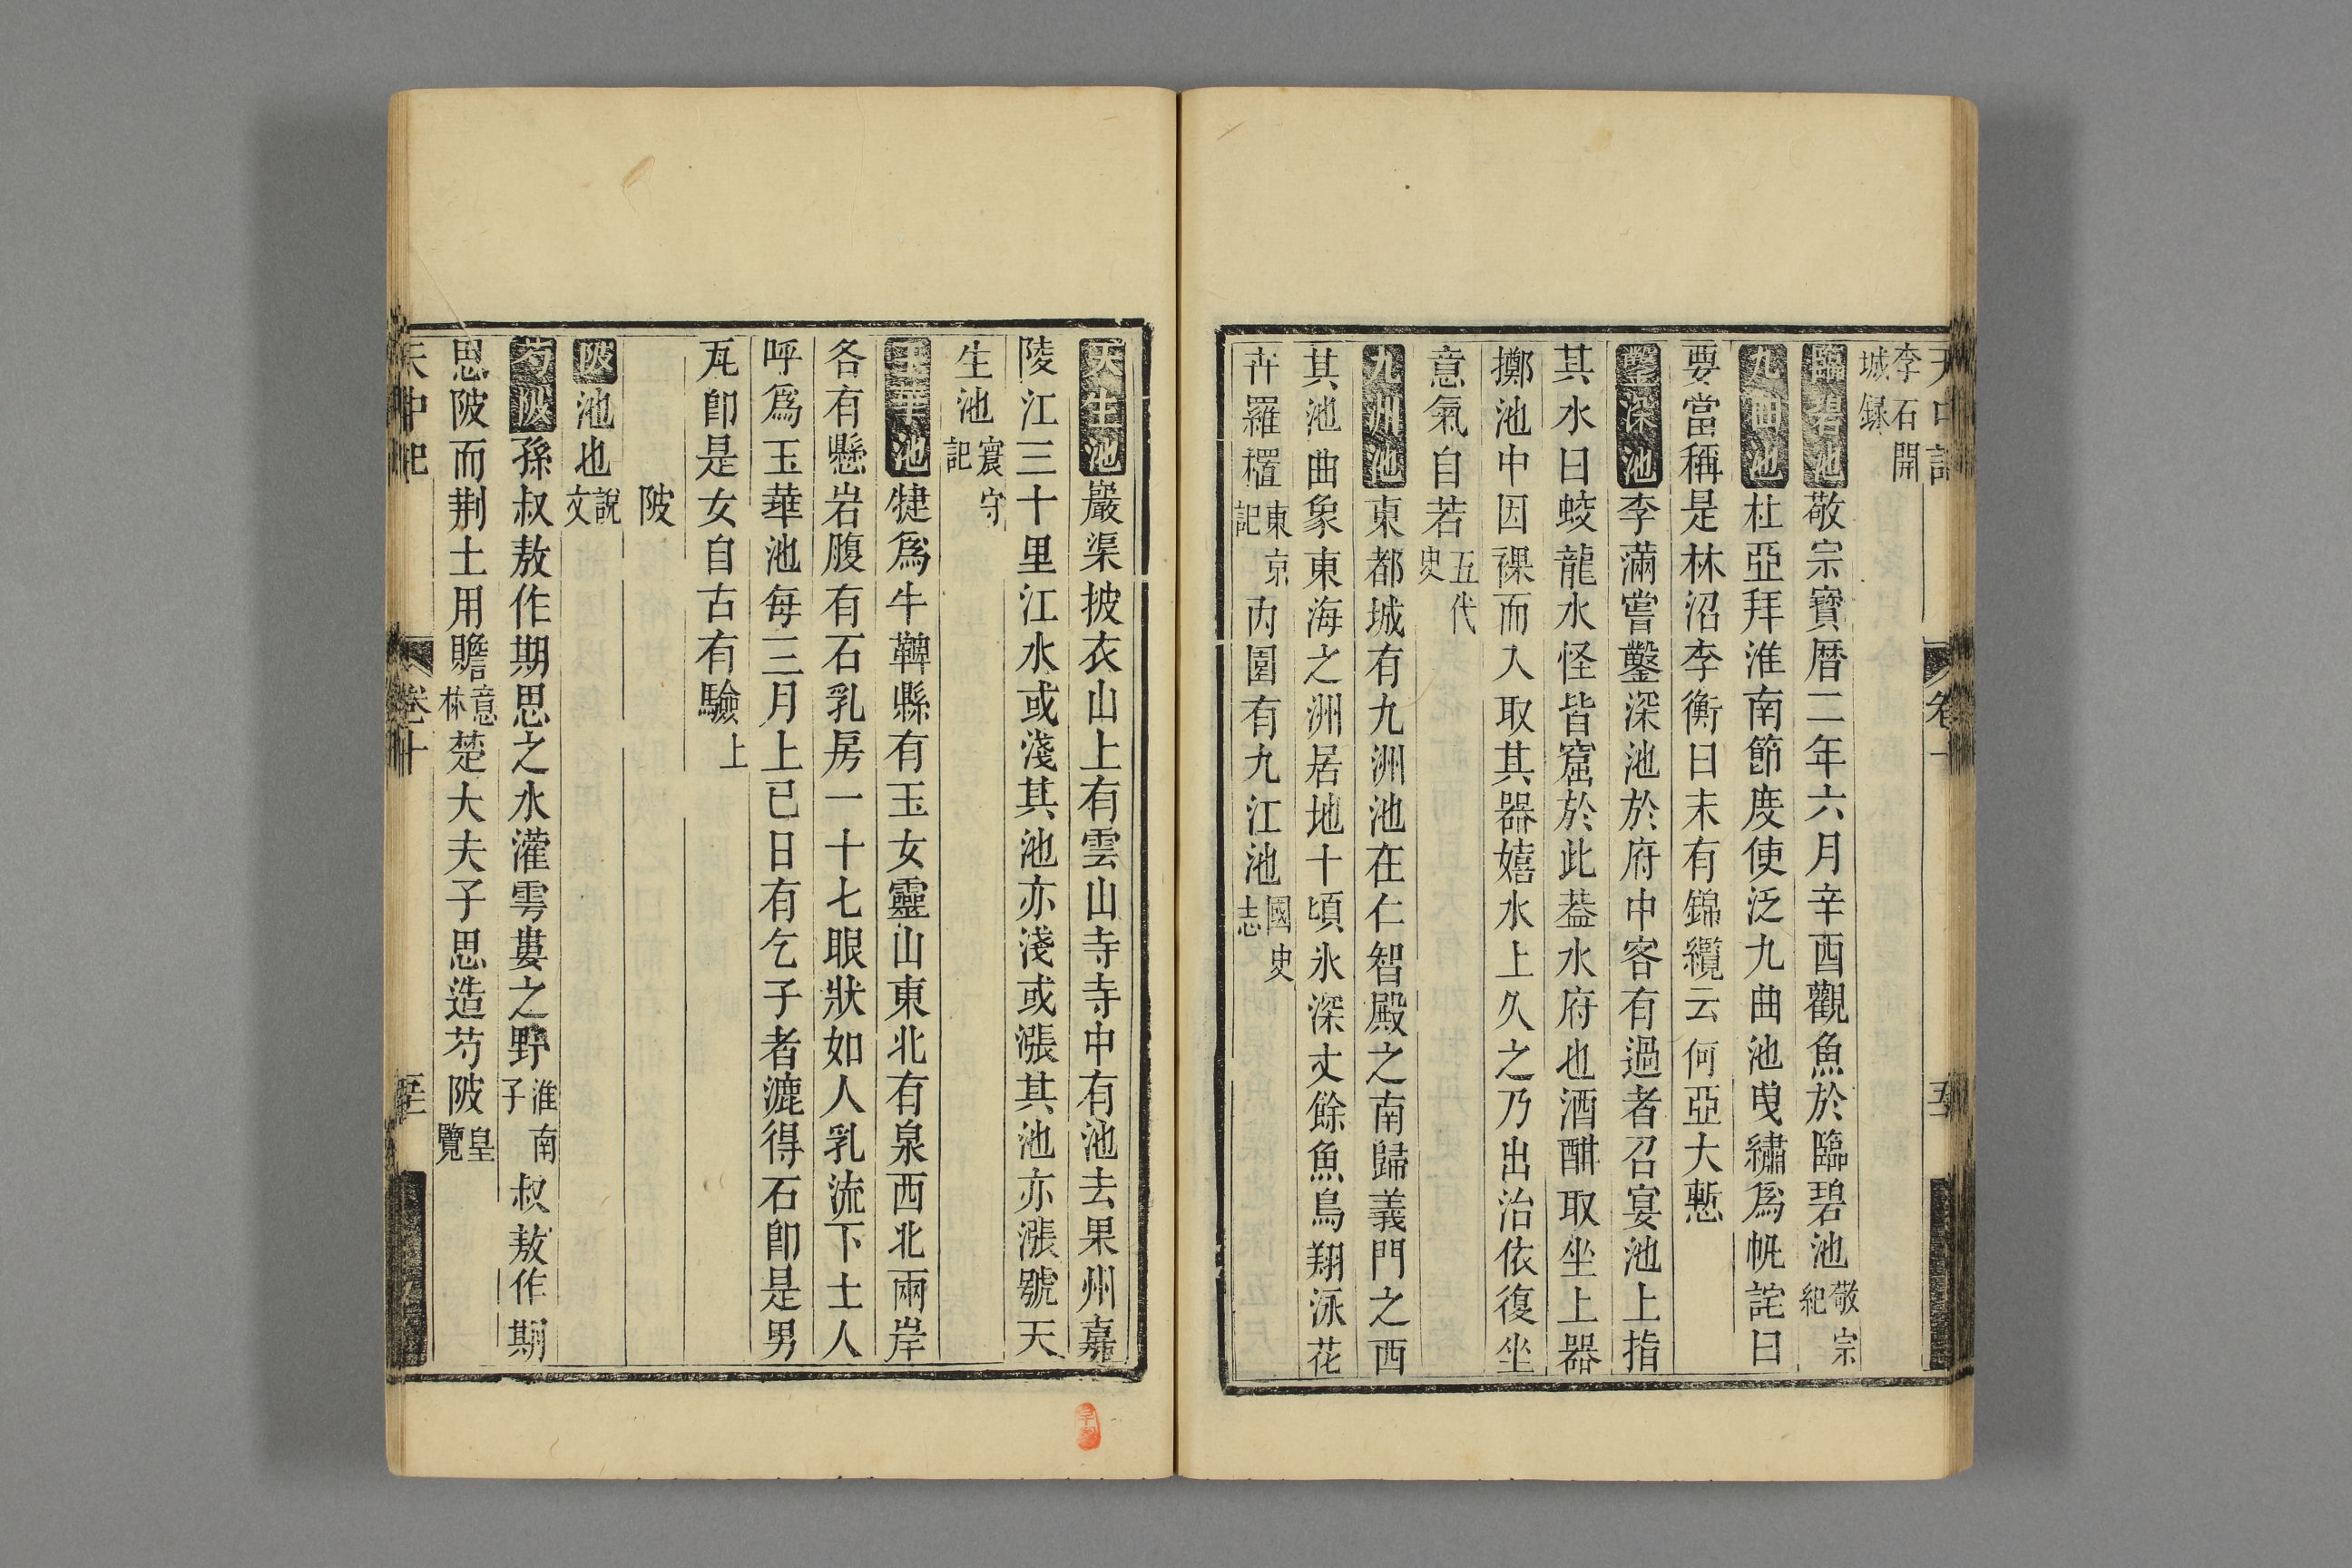 李石開城録
臨碧池敬宗寳曆二年六月辛酉觀魚於臨碧池敬宗紀
九曲池杜亞拜淮南節度使泛九曲池曳繡爲帆詫曰
要當稱是林沼李衡曰未有錦纜云何亞大慙
鑿深池李蒲嘗鑿深池於府中客有過者召宴池上指
其水曰蛟龍水怪皆窟於此葢水府也酒酣取坐上器
擲池中因裸而入取其器嬉水上久之乃出治依復坐
意氣自若五代史
九洲池東都城有九洲池在仁智殿之南歸義門之西
其池曲象東海之洲居地十頃氷深丈餘魚鳥翔泳花
卉羅櫂東京記内園有九江池國史志
天生池巖渠披衣山上有雲山寺寺中有池去果州嘉
陵江三十里江水或淺其池亦淺或漲其池亦漲號天
生池寰守記
玉華池犍爲牛鞞縣有玉女靈山東北有泉西北兩岸
各有懸岩腹有石乳房一十七眼狀如人乳流下士人
呼爲玉華池每三月上巳日有乞子者漉得石卽是男
瓦卽是女自古有驗上
陂
陂池也說文
芍陂孫叔敖作期思之水灌雩婁之野淮南子叔敖作期
思陂而荆土用贍意林楚大夫子思造芍陂皇覽
天中記 卷十